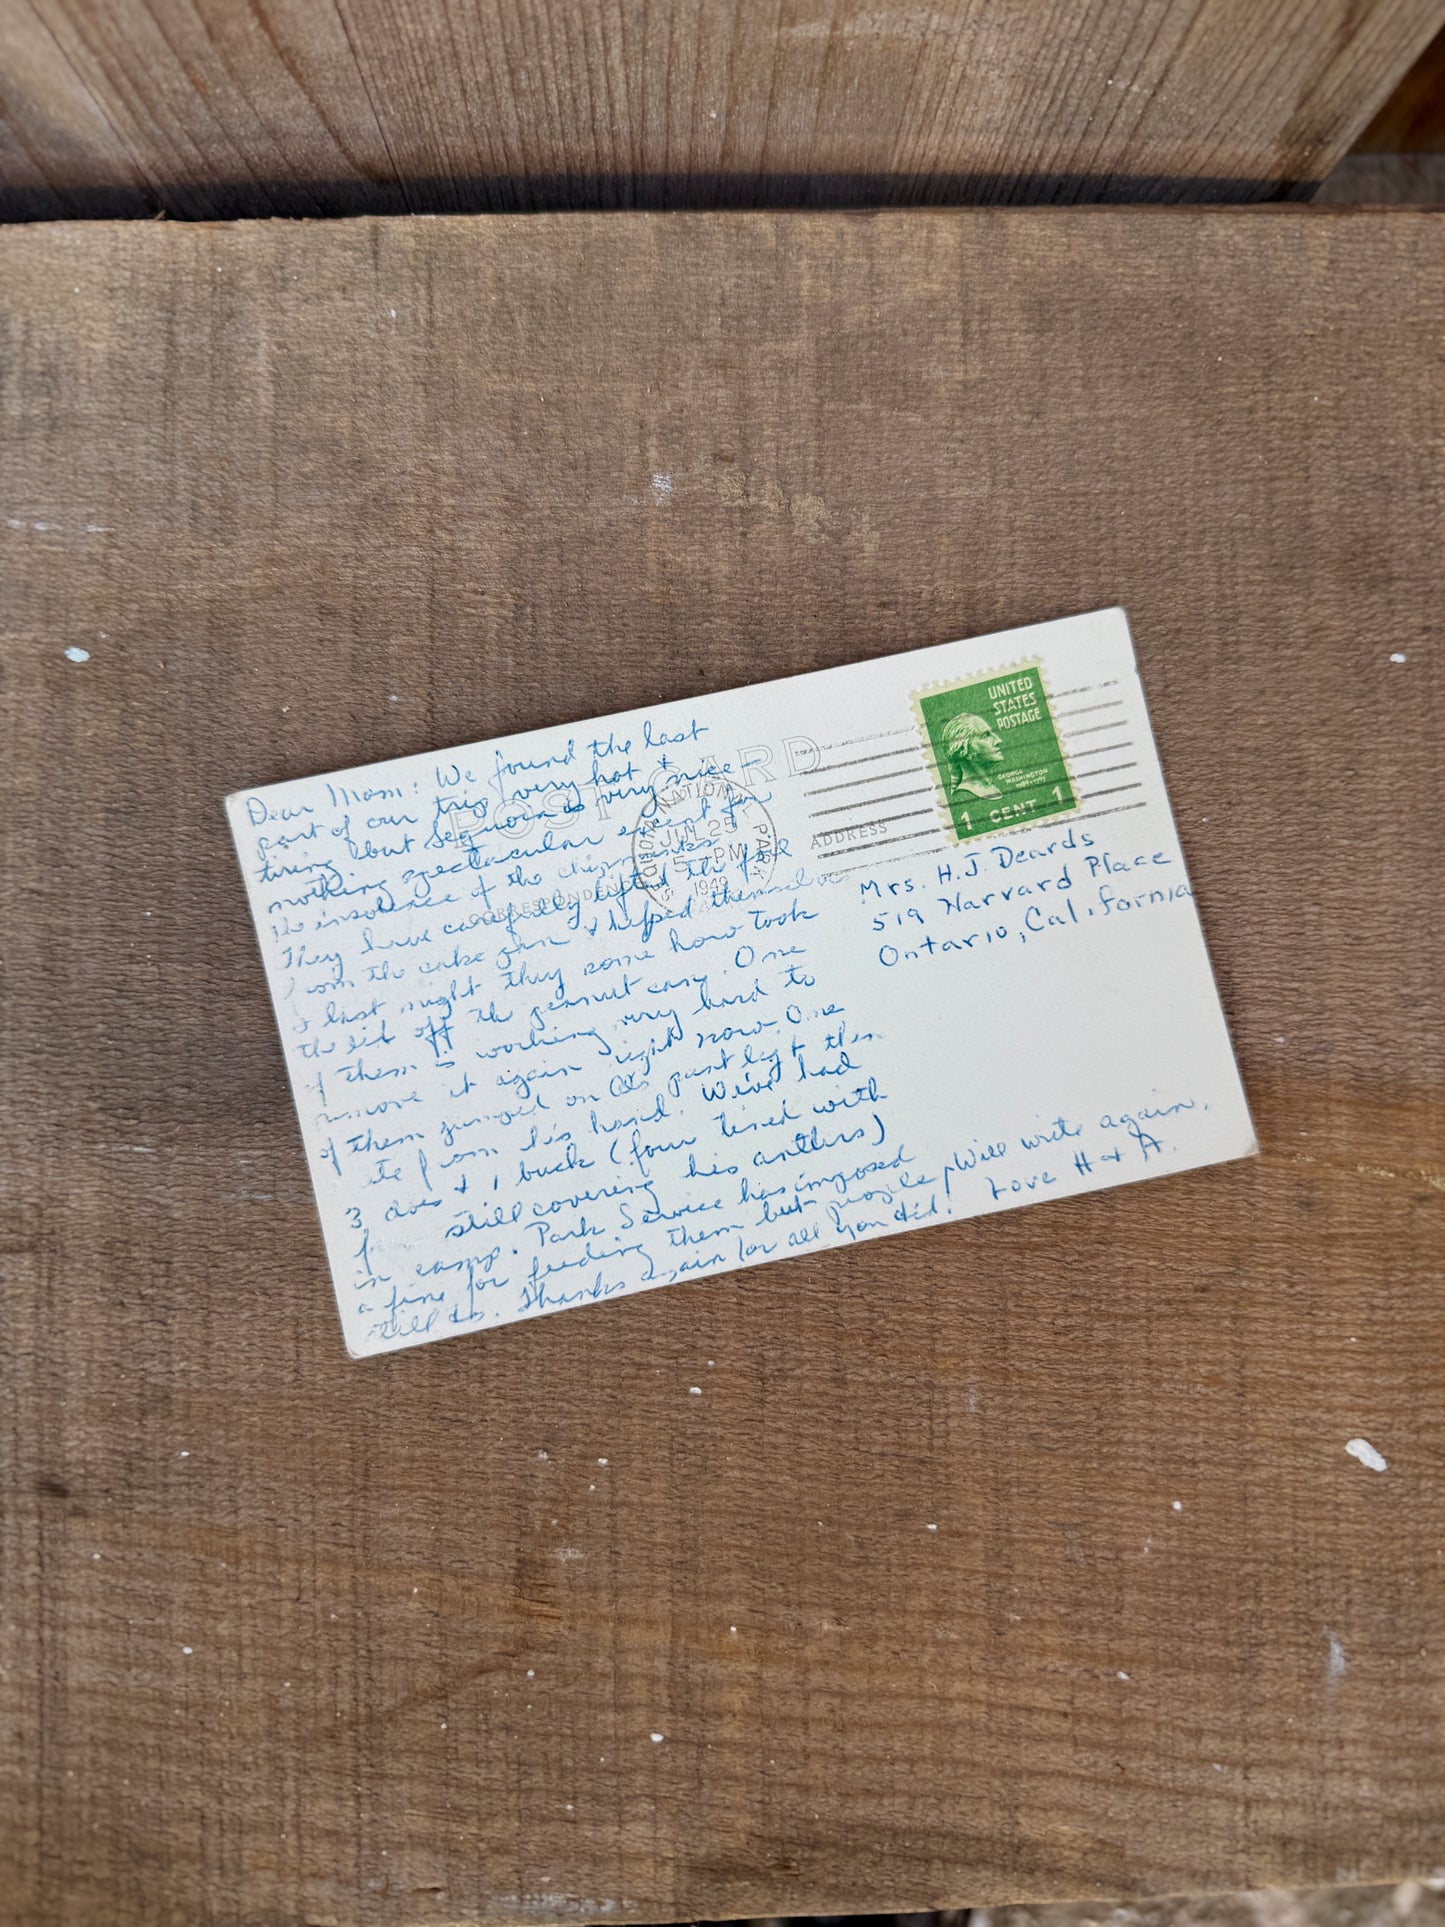 POST CARD
CORRESPONDENCE
ADDRESS
SEQUOIA NATIONAL PARK
JUL 25
5 - PM
1949
UNITED
STATES
POSTAGE
GEORGE
WASHINGTON
1 CENT 1
Dear Mom: We found the last
part of our trip very hot +
tiring but Sequoia is very nice—
nothing spectacular except for
the insolence of the chipmunks
They have carefully lifted the foil
from the cake pan & helped themselves
& last night they some how took
the lid off the peanut can. One
of them is working very hard to
remove it again right now. One
of them jumped on Al's pant leg then
ate from his hand. We've had
3 does & 1 buck (four tined with
fur still covering his antlers)
in camp. Park Service has imposed
a fine for feeding them but people
still do. Thanks again for all you did!
Will write again.
Love H & A.
Mrs. H.J. Deards
519 Harvard Place
Ontario, California